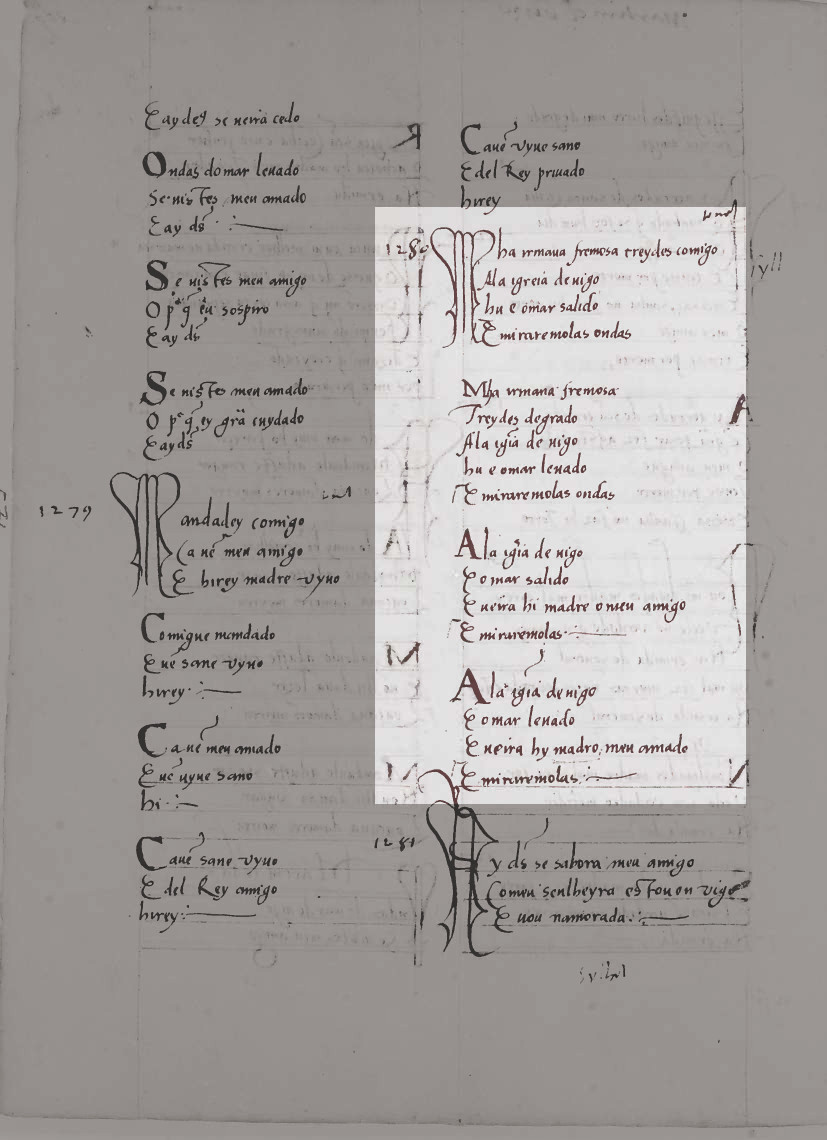 Eay deꝯ se ueira cedo
Ondas do mar leuado
Se uistes meu amado
Eay ds̃
Se uistes meu amigo
O p̃ q̃ eu sospiro
Eay ds̃
Se uistes meu amado
O p̃ q̃ ey grã cuydado
Eay ds̃
1279
Mandadey comigo
Ca uẽ meu amigo
E hirey madre vyuo
Comigue mandado
Euẽ sane vyuo
hirey
Ca uẽ meu amado
Euẽ vyue sano
hi
Ca uẽ sane vyuo
E del Rey amigo
hirey
Ca uẽ vyue sano
E del Rey priuado
hirey
1280
Mha irmana fremosa treydes comigo
Ala igreia de uigo
hu e o mar salido
E miraremolas ondas
Mha irmana fremosa
Treydes de grado
Ala igĩa de uigo
hu e o mar leuado
E miraremolas ondas
Ala igĩa de uigo
E o mar salido
E ueira hi madre o meu amigo
E miraremolas
Ala igĩa de uigo
E o mar leuado
E ueira hy madro, meu amado
E miraremolas
1281
Ay ds̃ se sabora meu amigo
Comeu senlheyra estou en vigo
E uou namorada